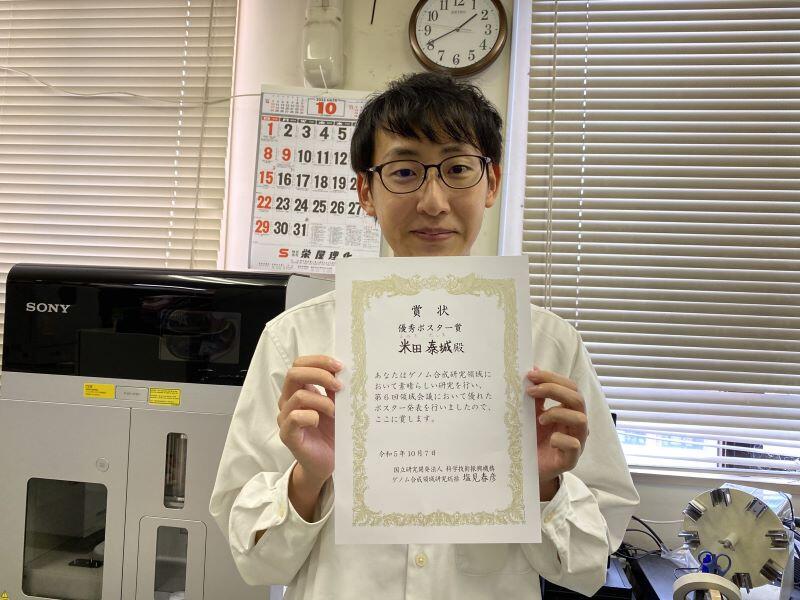 SEIKO
10
1 2 3 4 5
8 9 10 11 12
15 16 17 18 19 20
22 23 24 25 26 27
29 30 31
栄屋理化
SONY
賞状
優秀ポスター賞
米田 泰城 殿
あなたはゲノム合成研究領域に
おいて素晴らしい研究を行い、
第6回領域会議において優れた
ポスター発表を行いましたので、
ここに賞します。
令和5年10月7日
国立研究開発法人 科学技術振興機構
ゲノム合成領域研究総括 塩見春彦